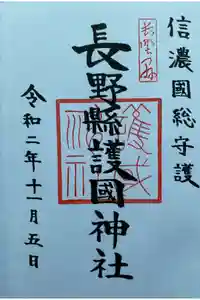 信濃國総守護
長野縣護國神社
令和二年十一月五日